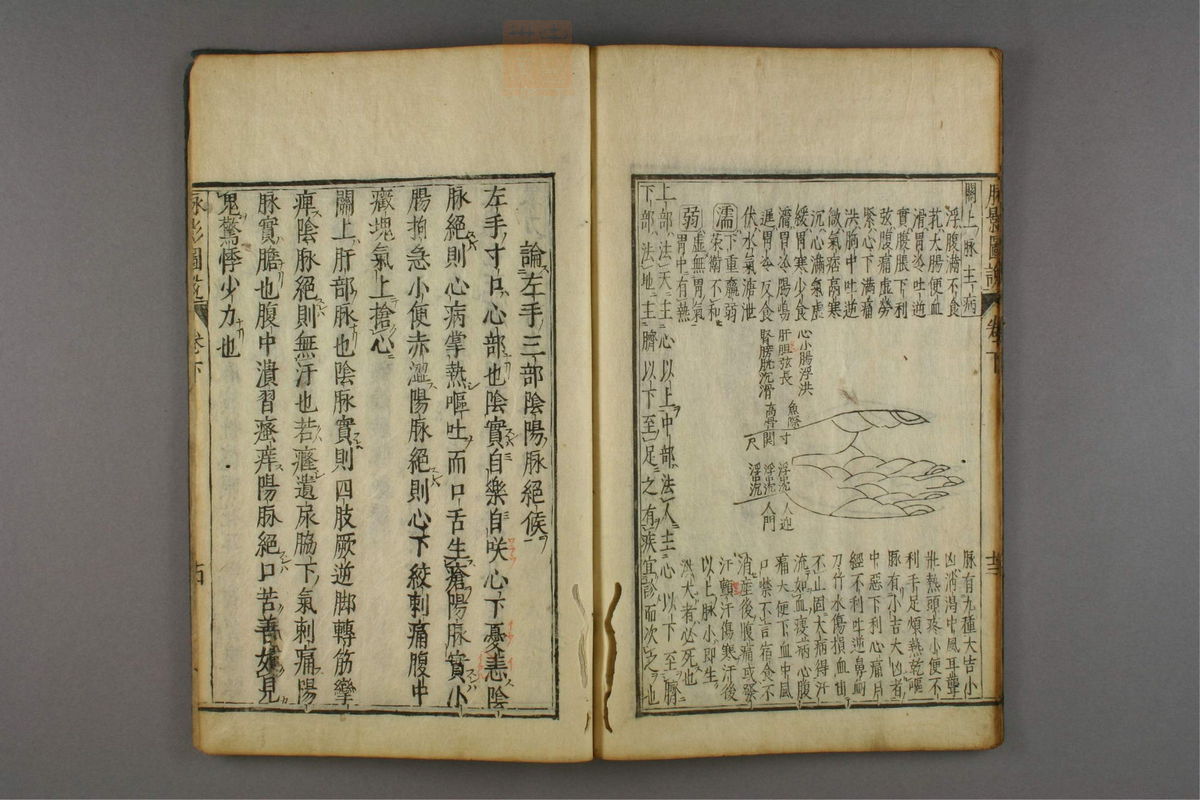 脉影圖說 卷下
關上脉主病
浮腹滿不食
芤大腸便血
滑胃冷吐逆
實腹脹下利
弦腹痛虛勞
緊心下滿痛
洪胸中吐逆
微氣痞膈寒
沉心滿氣虛
緩胃寒少食
濇胃冷腸鳴
遲胃冷反食
伏水氣溏泄
濡
下重羸弱
荣衛不和
弱
虛無胃氣
胃中有熱
心小腸浮洪
肝胆弦長
腎膀胱沉滑
魚際寸
高骨関
尺
浮泥人迎
浮泥
浮泥人門
脉有九種大吉小
凶消渴中風耳聾
壯熱頭疼小便不
利手足煩熱乾嘔
脉有小吉大凶者
中惡下利心痛月
經不利吐逆鼻衄
刀竹水傷損血出
不止因大病得汗
流如血疫病心腹
痛大便下血中風
口噤不言宿食不
消産後腹痛或發
汗顫汗傷寒汗後
以上脉小即生
洪大者必死也
上部法天主心以上中部法人主心以下至臍
下部法地主臍以下至足之有疾宜診而次之也
論左手三部陰陽脉絕候
左手寸口心部也陰實自樂自咲心下憂恚陰
脉絕則心病掌熱嘔吐而口舌生瘡陽脉實小
腸拘急小便赤澀陽脉絕則心下絞刺痛腹中
癥塊氣上搶心
關上肝部脉也陰脉實則四肢厥逆脚轉筋攣
痺陰脉絕則無汗也若癃遺尿脇下氣刺痛陽
脉實膽也腹中潰習瘙痒陽脉絕口苦善妬見
鬼驚悸少力也
脉影圖說 卷下